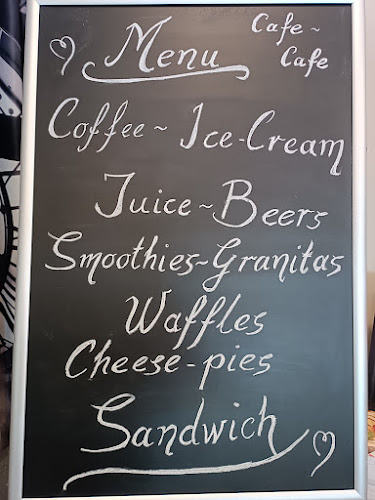 Menu Cafe~
Cafe
Coffee~Ice-Cream
Juice~Beers
Smoothies-Granitas
Waffles
Cheese-pies
Sandwich